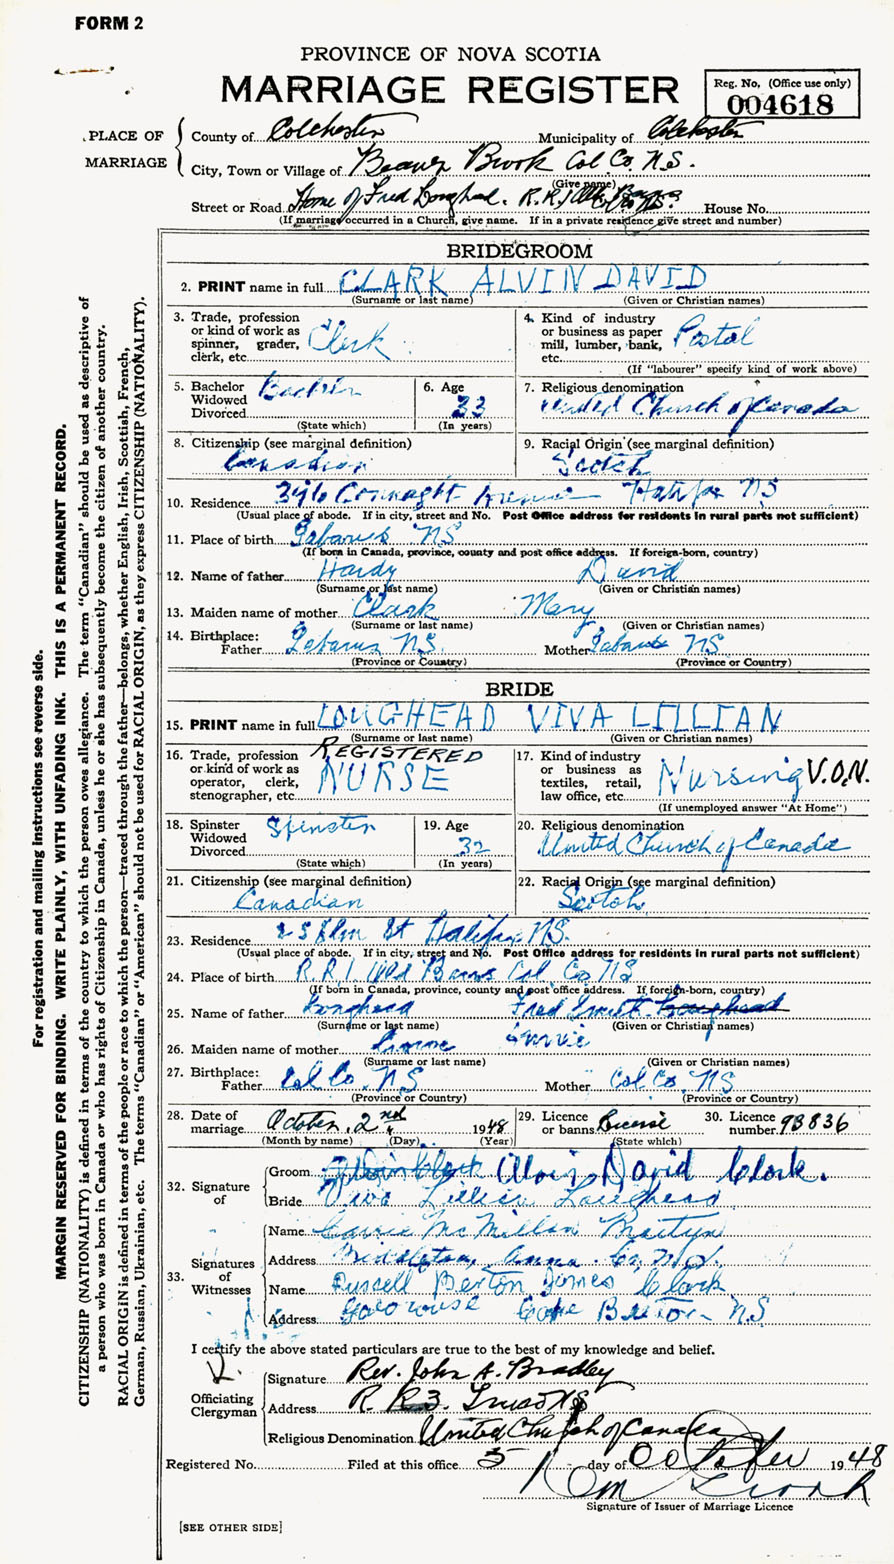 FORM 2
PROVINCE OF NOVA SCOTIA
MARRIAGE REGISTER
Reg. No. (Office use only)
004618
PLACE OF MARRIAGE
County of Colchester Municipality of Colchester
City, Town or Village of Beaver Brook Col. Co. N.S.
(Give name)
Street or Road Home of Fred Longhead. R.R.1 House No.
(If marriage occurred in a Church, give name. If in a private residence give street and number)
BRIDEGROOM
2. PRINT name in full CLARK ALVIN DAVID
(Surname or last name) (Given or Christian names)
3. Trade, profession or kind of work as spinner, grader, clerk, etc. Clerk
4. Kind of industry or business as paper mill, lumber, bank, etc. Postal
(If "labourer" specify kind of work above)
5. Bachelor Widowed Divorced Bachelor
(State which)
6. Age 33
(In years)
7. Religious denomination United Church of Canada
8. Citizenship (see marginal definition) Canadian
9. Racial Origin (see marginal definition) Scotch
10. Residence Connaght Avenue Halifax NS
(Usual place of abode. If in city, street and No. Post Office address for residents in rural parts not sufficient)
11. Place of birth Gabarus NS
(If born in Canada, province, county and post office address. If foreign-born, country)
12. Name of father Hardy David
(Surname or last name) (Given or Christian names)
13. Maiden name of mother Clark Mary
(Surname or last name) (Given or Christian names)
14. Birthplace: Father Gabarus NS. Mother Gabarus NS
(Province or Country) (Province or Country)
BRIDE
15. PRINT name in full LOUGHEAD VIVA LILLIAN
(Surname or last name) (Given or Christian names)
16. Trade, profession or kind of work as operator, clerk, stenographer, etc. REGISTERED NURSE
17. Kind of industry or business as textiles, retail, law office, etc. Nursing V.O.N.
(If unemployed answer "At Home")
18. Spinster Widowed Divorced Spinster
(State which)
19. Age 32
(In years)
20. Religious denomination United Church of Canada
21. Citizenship (see marginal definition) Canadian
22. Racial Origin (see marginal definition) Scotch
23. Residence Elm St Halifax NS.
(Usual place of abode. If in city, street and No. Post Office address for residents in rural parts not sufficient)
24. Place of birth R.R.1 Old Barns Col. Co. NS
(If born in Canada, province, county and post office address. If foreign-born, country)
25. Name of father Longhead Fred Smith Longhead
(Surname or last name) (Given or Christian names)
26. Maiden name of mother Annie
(Surname or last name) (Given or Christian names)
27. Birthplace: Father Col Co. NS Mother Col Co. NS
(Province or Country) (Province or Country)
28. Date of marriage October 2nd 1948
(Month by name) (Day) (Year)
29. Licence or banns License
(State which)
30. Licence number 93836
32. Signature of
Groom Alvin Clark Alvin David Clark.
Bride Viva Lillian Loughead
33. Signatures of Witnesses
Name Carrie McMillan Martyn
Address Middleton, Anna. Co. N.S.
Name Russell Berton James Clark
Address Cape Breton NS
I certify the above stated particulars are true to the best of my knowledge and belief.
Officiating Clergyman
Signature Rev. John A. Bradley
Address R.R.3. Truro NS
Religious Denomination United Church of Canada
Registered No. Filed at this office 5 day of October 1948
Signature of Issuer of Marriage Licence
[SEE OTHER SIDE]
For registration and mailing instructions see reverse side.
MARGIN RESERVED FOR BINDING. WRITE PLAINLY, WITH UNFADING INK. THIS IS A PERMANENT RECORD.
CITIZENSHIP (NATIONALITY) is defined in terms of the country to which the person owes allegiance. The term "Canadian" should be used as descriptive of
a person who was born in Canada or who has rights of Citizenship in Canada, unless he or she has subsequently become the citizen of another country.
RACIAL ORIGIN is defined in terms of the people or race to which the person—traced through the father—belongs, whether English, Irish, Scottish, French,
German, Russian, Ukrainian, etc. The terms "Canadian" or "American" should not be used for RACIAL ORIGIN, as they express CITIZENSHIP (NATIONALITY).